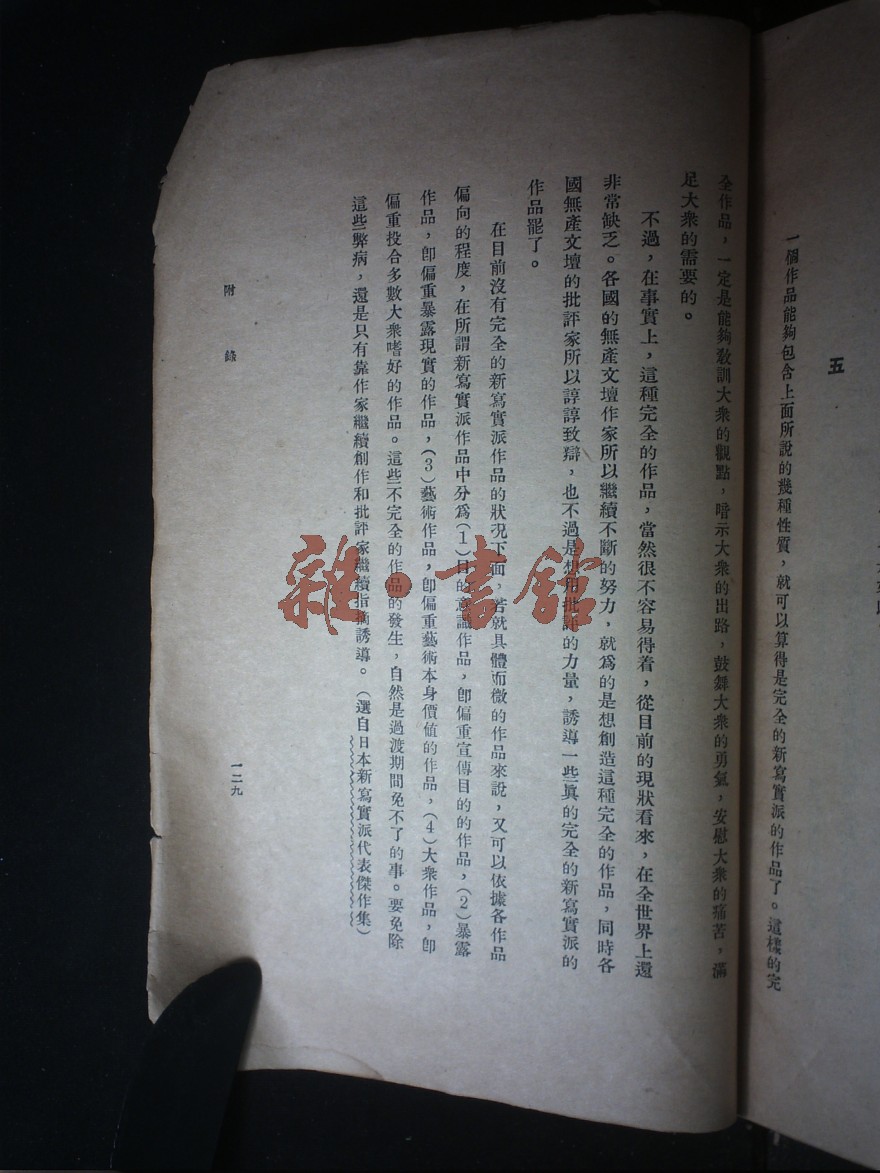 五
一個作品能夠包含上面所說的幾種性質，就可以算得是完全的新寫實派的作品了。這樣的完
全作品，一定是能夠教訓大衆的觀點，暗示大衆的出路，鼓舞大衆的勇氣，安慰大衆的痛苦，滿
足大衆的需要的。
不過，在事實上，這種完全的作品，當然很不容易得着，從目前的現狀看來，在全世界上還
非常缺乏。各國的無產文壇作家所以繼續不斷的努力，就爲的是想創造這種完全的作品，同時各
國無產文壇的批評家所以諄諄致辯，也不過是想用批評的力量，誘導一些眞的完全的新寫實派的
作品罷了。
在目前沒有完全的新寫實派作品的狀況下面，若就具體而微的作品來說，又可以依據各作品
偏向的程度，在所謂新寫實派作品中分爲（1）目的意識作品，卽偏重宣傳目的的作品，（2）暴露
作品，卽偏重暴露現實的作品，（3）藝術作品，卽偏重藝術本身價値的作品，（4）大衆作品，卽
偏重投合多數大衆嗜好的作品。這些不完全的作品的發生，自然是過渡期間免不了的事。要免除
這些弊病，還是只有靠作家繼續創作和批評家繼續指摘誘導。（選自日本新寫實派代表傑作集）
附 錄
一二九
雜·書館